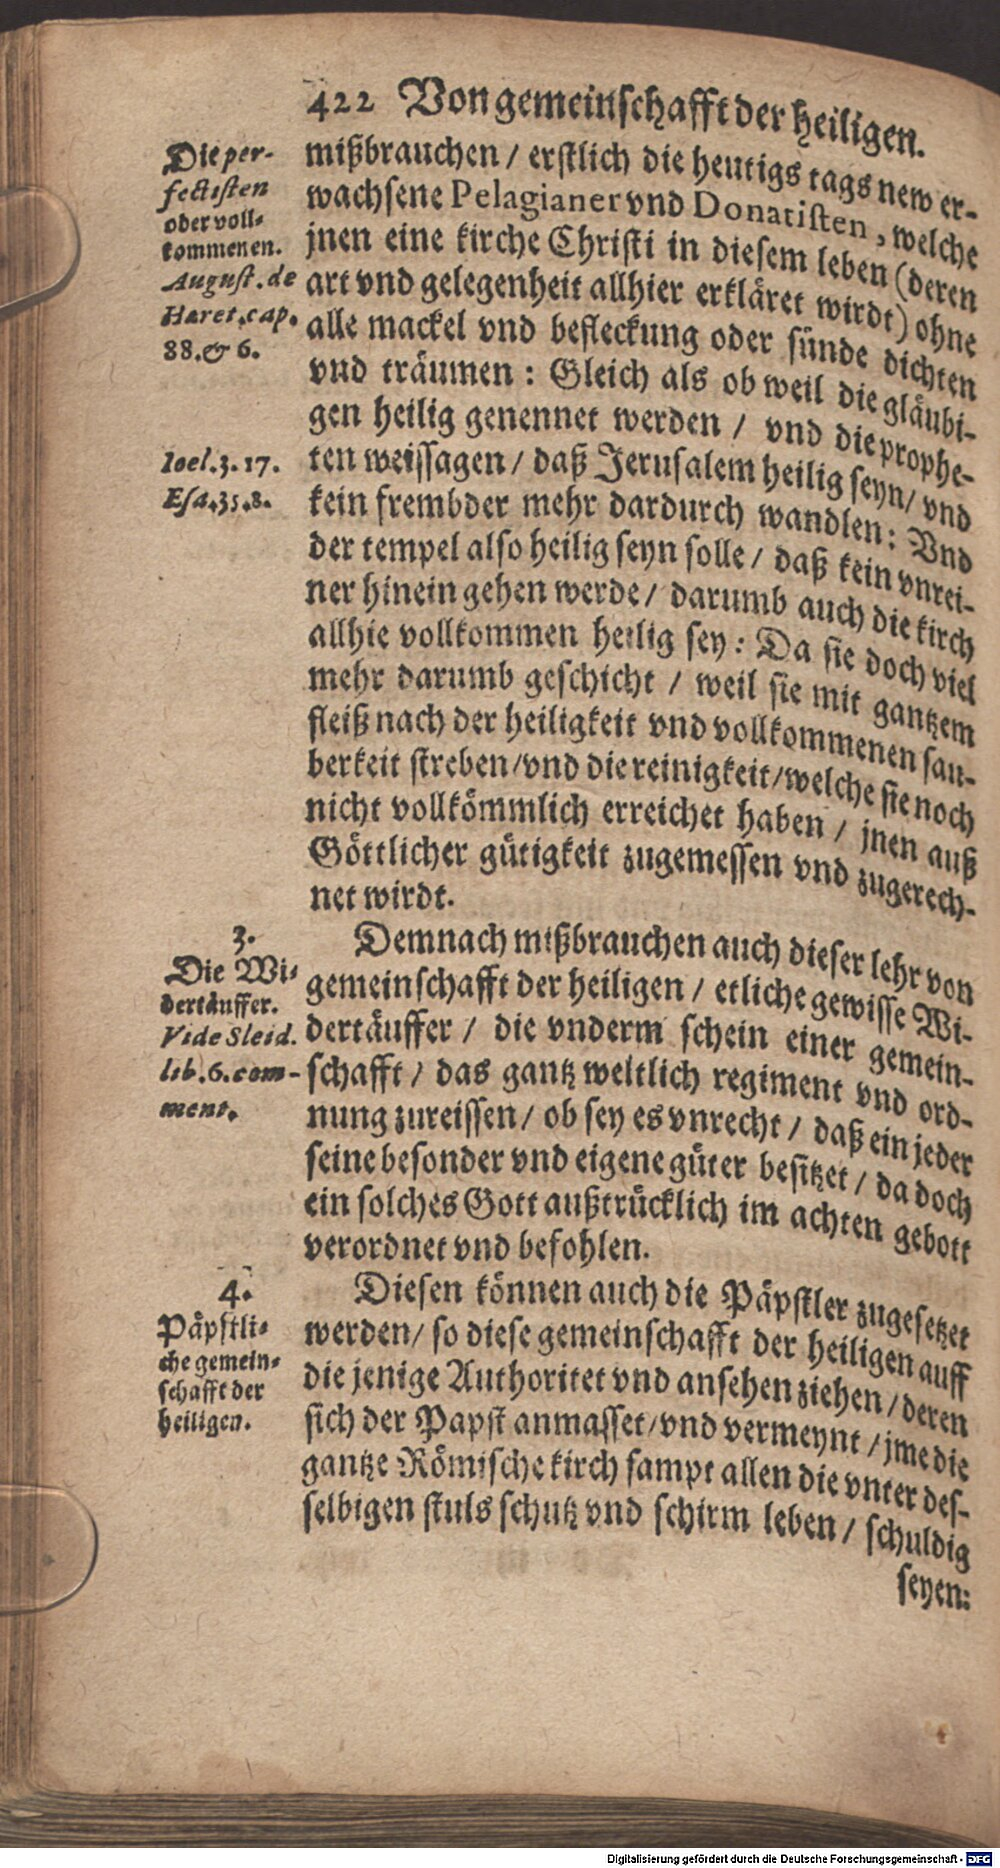 422 Von gemeinschafft der heiligen.
Die per-
fectisten
oder voll-
kommenen.
August. de
Hæret. cap.
88. & 6.
Ioel. 3. 17.
Esa. 35. 8.
mißbrauchen / erstlich die heutigs tags new er-
wachsene Pelagianer vnd Donatisten, welche
jnen eine kirche Christi in diesem leben (deren
art vnd gelegenheit allhier erkläret wirdt) ohne
alle mackel vnd befleckung oder sünde dichten
vnd träumen : Gleich als ob weil die gläubi-
gen heilig genennet werden / vnd die prophe-
ten weissagen / daß Jerusalem heilig seyn / vnd
kein frembder mehr dardurch wandlen: Vnd
der tempel also heilig seyn solle / daß kein vnrei-
ner hinein gehen werde / darumb auch die kirch
allhie vollkommen heilig sey : Da sie doch viel
mehr darumb geschicht / weil sie mit gantzem
fleiß nach der heiligkeit vnd vollkommenen sau-
berkeit streben / vnd die reinigkeit / welche sie noch
nicht vollkömmlich erreichet haben / jnen auß
Göttlicher gütigkeit zugemessen vnd zugerech-
net wirdt.
3.
Die Wi-
dertäuffer.
Vide Sleid.
lib. 6. com-
ment.
Demnach mißbrauchen auch dieser lehr von
gemeinschafft der heiligen / etliche gewisse Wi-
dertäuffer / die vnderm schein einer gemein-
schafft / das gantz weltlich regiment vnd ord-
nung zureissen / ob sey es vnrecht / daß ein jeder
seine besonder vnd eigene güter besitzet / da doch
ein solches Gott außtrücklich im achten gebott
verordnet vnd befohlen.
4.
Päpstli-
che gemein-
schafft der
heiligen.
Diesen können auch die Päpstler zugesetzet
werden / so diese gemeinschafft der heiligen auff
die jenige Authoritet vnd ansehen ziehen / deren
sich der Papst anmasset / vnd vermeynt / jme die
gantze Römische kirch sampt allen die vnter des-
selbigen stuls schutz vnd schirm leben / schuldig
seyen:
Digitalisierung gefördert durch die Deutsche Forschungsgemeinschaft - DFG